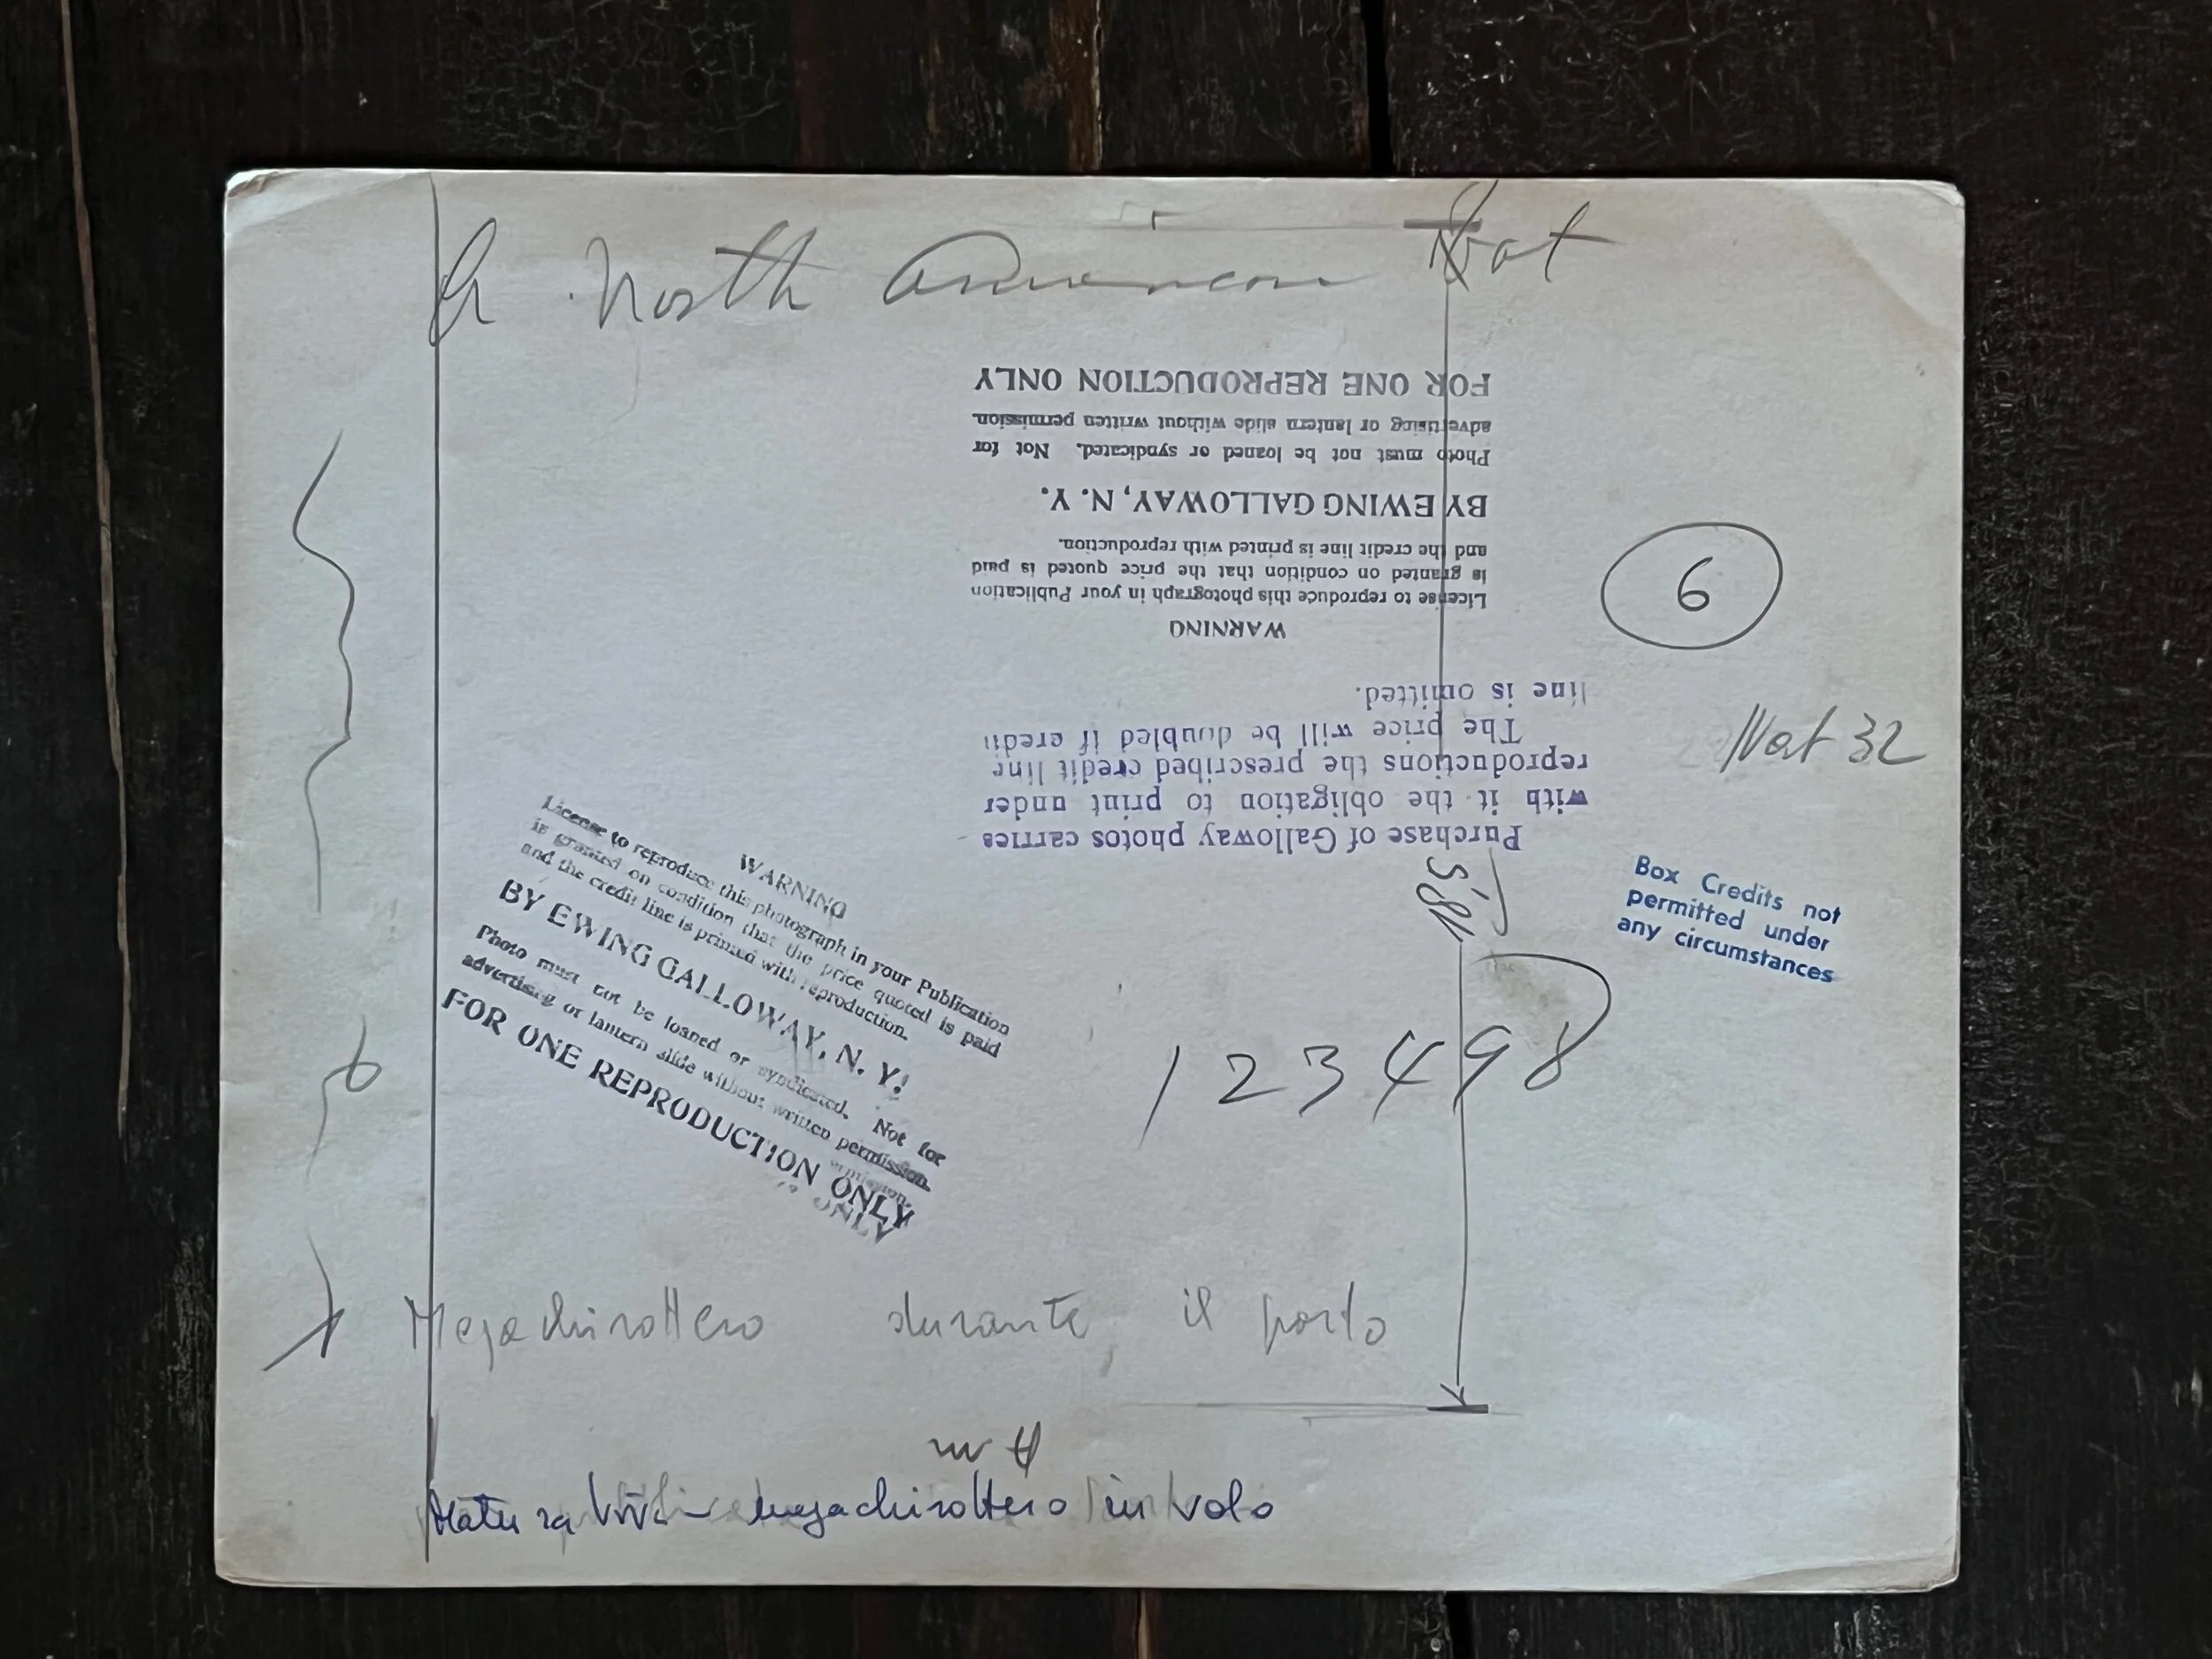 A North American bat
FOR ONE REPRODUCTION ONLY
advertising or lantern slide without written permission.
Photo must not be loaned or syndicated. Not for
BY EWING GALLOWAY, N. Y.
and the credit line is printed with reproduction.
is granted on condition that the price quoted is paid
License to reproduce this photograph in your Publication
WARNING
6
line is omitted.
The price will be doubled if credit
reproductions the prescribed credit line
with it the obligation to print under
Purchase of Galloway photos carries
Nat 32
Box Credits not
permitted under
any circumstances
WARNING
License to reproduce this photograph in your Publication
is granted on condition that the price quoted is paid
and the credit line is printed with reproduction.
BY EWING GALLOWAY, N. Y.
Photo must not be loaned or syndicated. Not for
advertising or lantern slide without written permission.
FOR ONE REPRODUCTION ONLY
ONLY
123498
Megachirottero durante il
megachirottero in volo